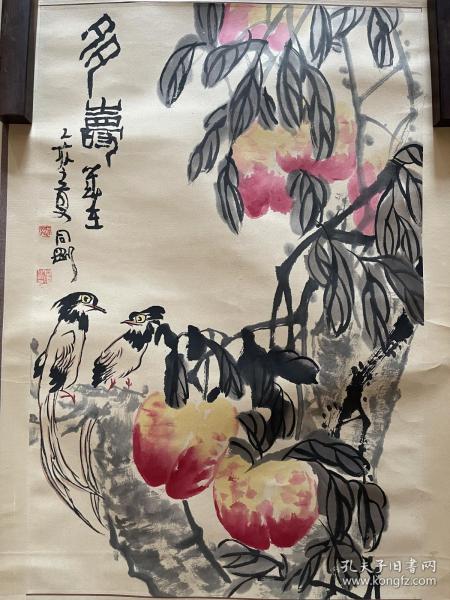 多寿
华在
乙亥之夏同刚
孔夫子旧书网
www.kongfz.com